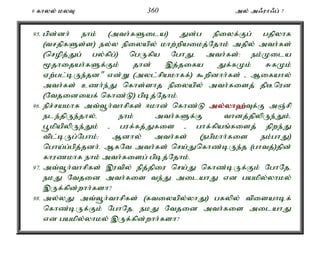 9 காலல் மலவு 360 அல் அஃராஃப் 7
95. பின்னர் நாம் (அவர்களுடைய) துன்ப நிலைக்குப் பதிலாக
(வசதிகளுள்ள) நல்ல நிலையில் மாற்றியமைத்தோம் அதில் அவர்கள்
(செழித்துப் பல்கிப்) பெருகிய போது, அவர்கள்: நம்முடைய
மூதாதையர்களுக்கும் தான் இத்தகைய துக்கமும் சுகமும்
ஏற்பட்டிருந்தன" என்று (அலட்சியமாகக்) கூறினார்கள் . ஆகையால்
அவர்கள் உணர்ந்து கொள்ளாத நிலையில் அவர்களைத் திடீரென
(வேதனையைக் கொண்டு) பிடித்தோம்.
96. நிச்சயமாக அவ்வூர்வாசிகள் ஈமான் கொண்டு அல்லாஹ்வுக்கு அஞ்சி
நடந்திருந்தால், நாம் அவர்களுக்கு வானத்திலிருந்தும்,
பூமியிலிருந்தும் . பரக்கத்துகளை . பாக்கியங்களைத் திறந்து
விட்டிருப்போம்; ஆனால் அவர்கள் (நபிமார்களை நம்பாது)
பொய்ப்பித்தனர். ஆகவே அவர்கள் செய்துகொண்டிருந்த (பாவத்)தின்
காரணமாக நாம் அவர்களைப் பிடித்தோம்.
97. அவ்வூர்வாசிகள் இரவில் நித்திரை செய்து கொண்டிருக்கும் போதே,
நமது வேதனை அவர்களை வந்து அடையாது என பயமில்லாமல்
இருக்கின்றார்களா?
98. அல்லது அவ்வூர்வாசிகள் (கவலையில்லாது) பகலில் விளையாடிக்
கொண்டிருக்கும் போதே, நமது வேதனை அவர்களை அடையாது
என பயமில்லாமல் இருக்கின்றார்களா?